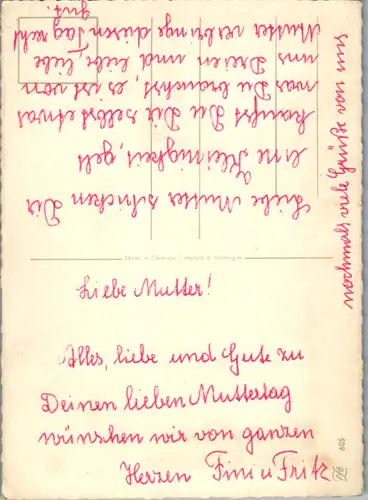 Liebe Mutter!
Alles, liebe und Gute zu
Deinen lieben Muttertag
wünschen wir von ganzen
Herzen Fini u Fritz
Liebe Mutter schicken Dir
eine Kleinigkeit, gelt
kaufst Du Dir selbst etwas
was Du brauchst, es ist von
uns Dreien und liebe, liebe
Mutter verbringe diesen Tag recht
gut.
nochmals viele Grüße von uns
Made in Germany / Importé d'Allemagne
605